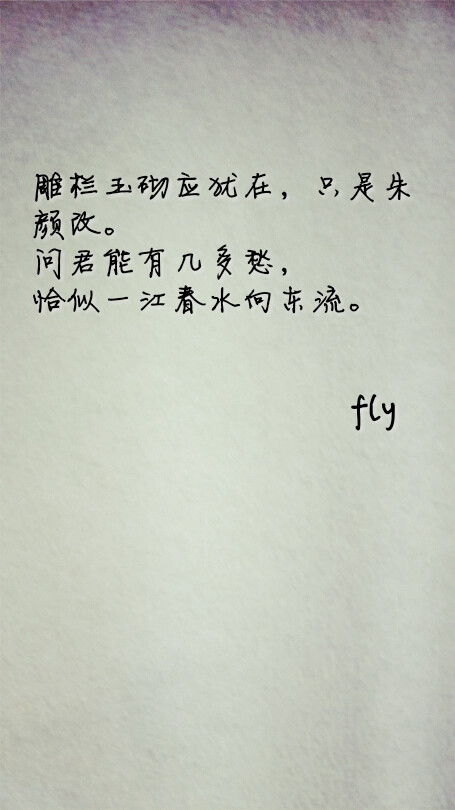 雕栏玉砌应犹在，只是朱
颜改。
问君能有几多愁，
恰似一江春水向东流。
fly